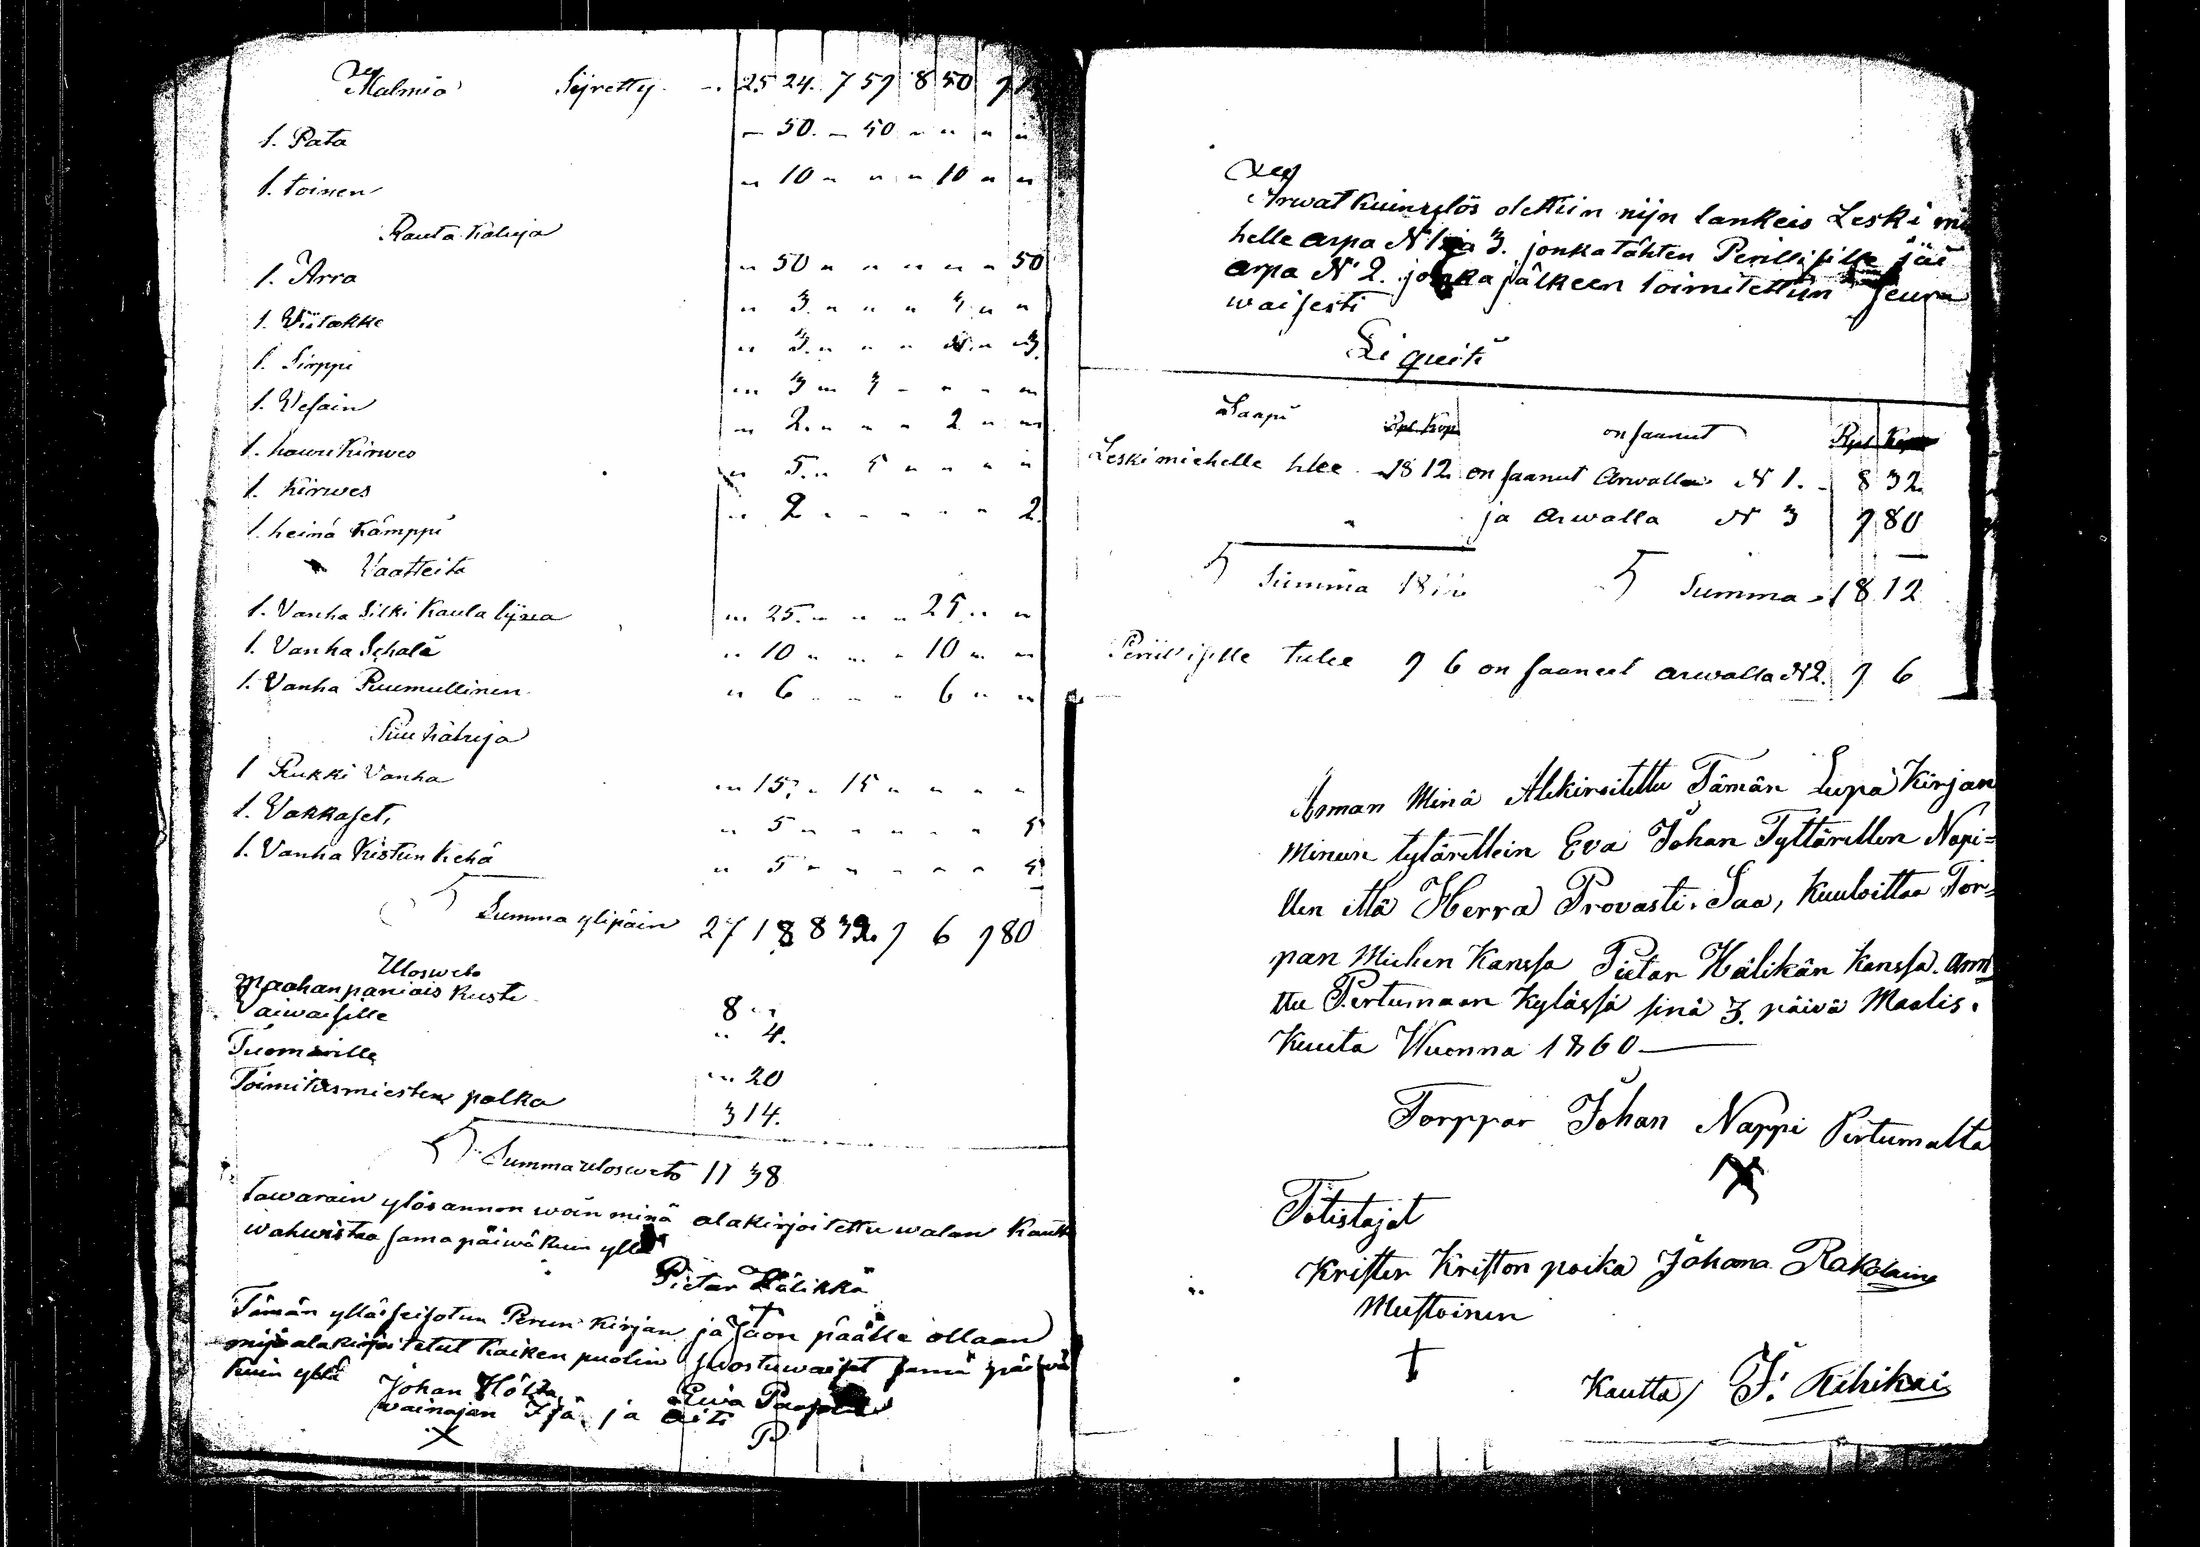 Malmia Sijretty - 25 24. 7 59 8 50 9
1. Pata - 50. - 50 " " " "
1. toinen " 10 " " " 10 " "
Rauta Kaluja
1. Arra " 50 " " " " " 50
1. Viitakke " 3. " " " 3 " "
1. Sirppi " 3. " " " " " 3.
1. Vesain " 3 " 3 " " " "
1. hawukirwes " 2. " " " 2 " "
1. Kirwes " 5. " 5 " " " "
1. heinä Kämppi " 2 " " " " " 2.
Vaatteita
1. Vanha Silki Kaula lijna " 25. " " " 25 " "
1. Vanha Schala " 10 " " " 10 " "
1. Vanha Puumullinen " 6 " " " 6 " "
Puu kaluja
1 Rukki Vanha " 15. " 15 " " " "
1. Vakkaset, " 5 " " " " " 5
1. Vanha Kistun kehä " 5 " " " " " 5
Summa ylipäin 27 18 8 32. 9 6 9 80
Ulosweto
Maahanpaniais kusti 8 "
Vaiwaisille " 4.
Tuomarille " 20
Toimitusmiesten palka 3 14.
Summa ulosweto 11 38
Tawarain ylösannon woin minä alakirjoitettu walan Kautt
wahwistaa sama päiwä kuin yllä
Pietar Hälikkä
Tämän ylläseisotun Perun Kirjan ja Jaon päälle ollaan
mijo alakirjoitetut Kaiken puolin suostuwaiset sama päiwä
Kuin yllä
Johan Eewa
wainajan Isä ja äiti
X P
Arwat kuin ylös olettiin nijn lankeis Leski mi
helle arpa N 1 ja 3. jonka tähten Perillisille jäi
arpa N 2. jonka jälkeen toimitettiin seura
waisesti
Liquiti
Saapi Rpl. Kop. on saanut Rpl Kop
Leskimiehelle tulee 18 12 on saanut Arwalla N 1. 8 32
" ja arwalla N 3 9 80
Summa 18 12 Summa 18 12
Perillisille tulee 9 6 on saaneet arwalla N 2. 9 6
Annan Minä Alekirioitettu Tämän Lupa Kirjan
Minun tytärellein Eva Johan Tyttärellen Napi=
llen että Herra Provasti Saa, Kuuloittaa Tor=
pan Miehen Kanssa Pietar Hälikän Kanssa. Ann
ttu Pertumaan Kylässä sinä 3. päivä Maalis.
Kuuta Wuonna 1860
Torppar Johan Nappi Pertumalta
X
Totistajat
Krister Kriston poika Johana Rakolaine
Mustoinen
†
Kautta / J. Kihikai